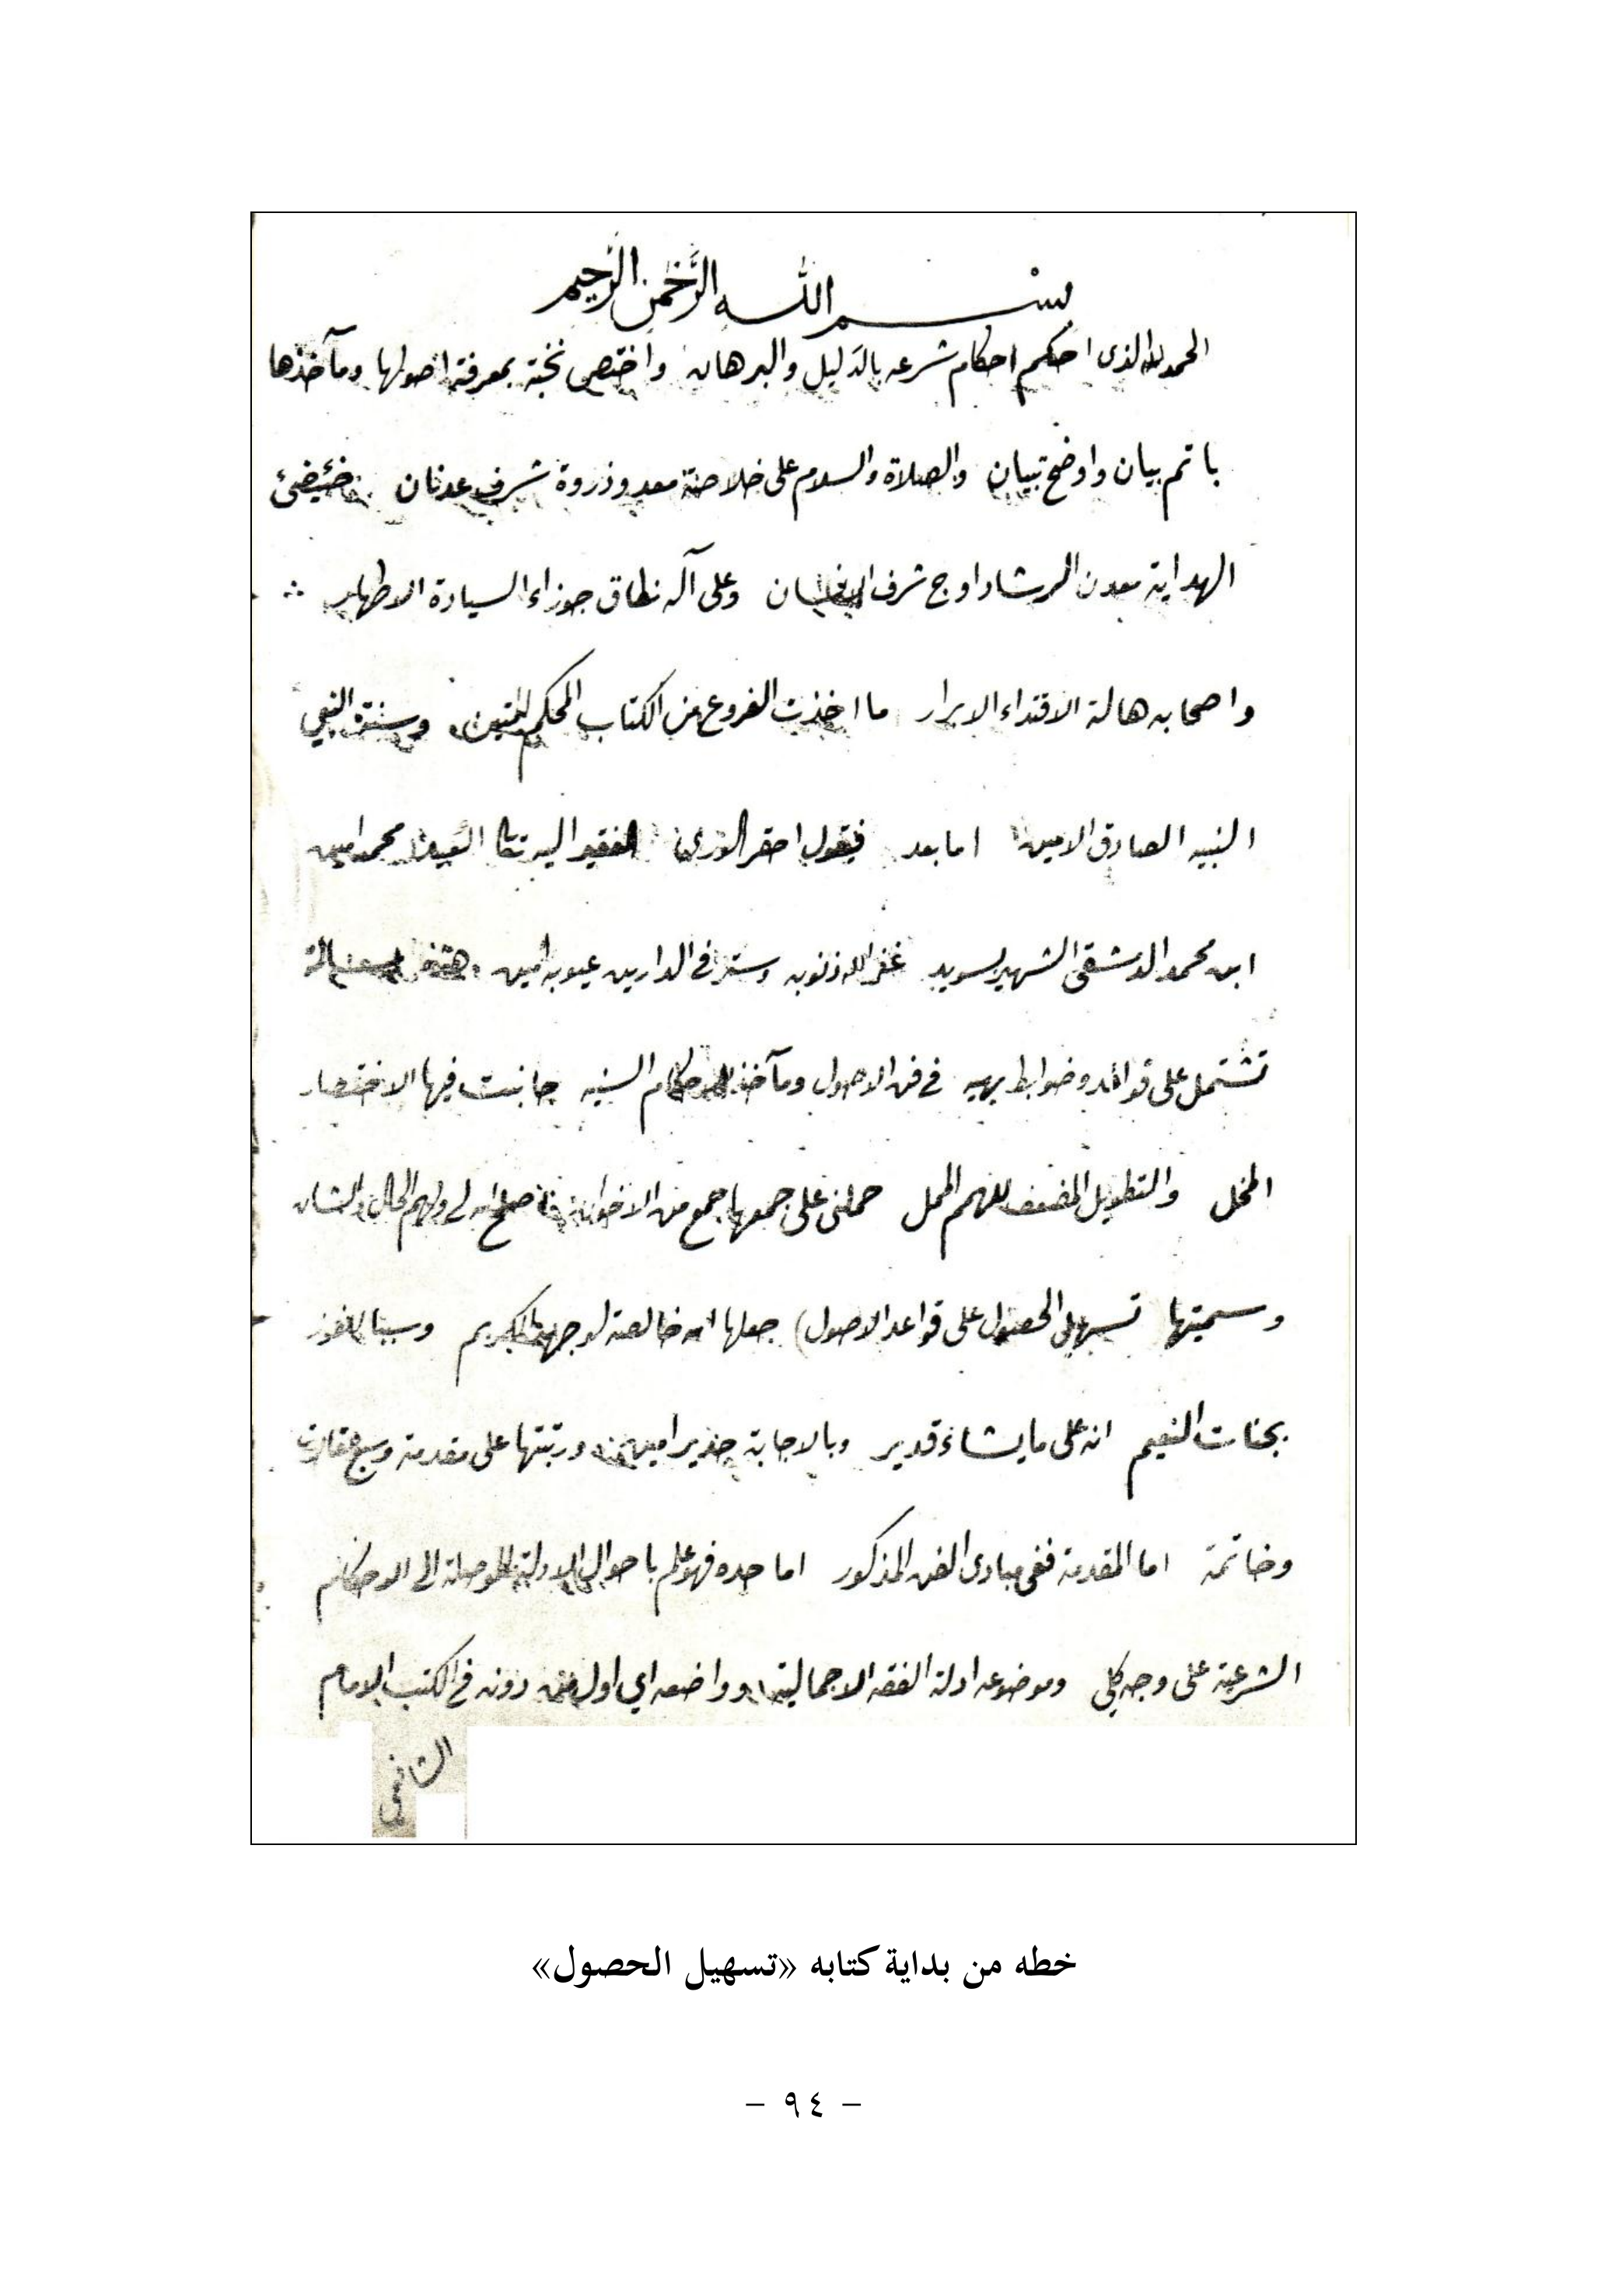 بسم الله الرَّحمن الرَّحيم
الحمد لله الذى احكم احكام شرعه بالدَليل والبرهان واختص نخبة بمعرفة اصولها ومآخذها
باتم بيان واوضح تبيان والصلاة والسلام على خلاصة معد وذروة شرف عدنان ضئيضئ
الهداية معدن الرشاد اوج شرف وعلى آله نطاق جوزاء السيادة الاطهار
واصحابه هالة الاقتداء الابرار ما اخذت الفروع من الكتاب المحكم المتين وسنة النبي
النبيه الصادق الامين اما بعد فيقول احقر الورى الفقير اليه تعالى السيد محمد امين
ابن محمد الدمشقى الشهير بسويد غفر الله ذنوبه وستر فى الدارين عيوبه امين هذه رسالة
تشتمل على قواعد وضوابط بهيه فى فن الاصول ومآخذ الاحكام السنيه جانبت فيها الاختصار
المخل والتطويل المضعف للهمم الممل حملنى على جمعها جمع من الاخوان اصلح الله لى ولهم الحال والشان
وسميتها تسهيل الحصول على قواعد الاصول) جعلها الله خالصة لوجهه الكريم وسببا للفوز
بجنات النعيم انه على ما يشاء قدير وبالاجابة جدير امين ورتبتها على مقدمة وسبع مقالات
وخاتمة اما المقدمة ففى مبادى الفن المذكور اما حده فهو علم باحوال الادلة الموصلة الى الاحكام
الشرعية على وجه كلي وموضوعه ادلة الفقه الاجمالية وواضعه اي اول من دونه فى الكتب الامام
الشافعى
خطه من بداية كتابه «تسهيل الحصول»
– ٩٤ –